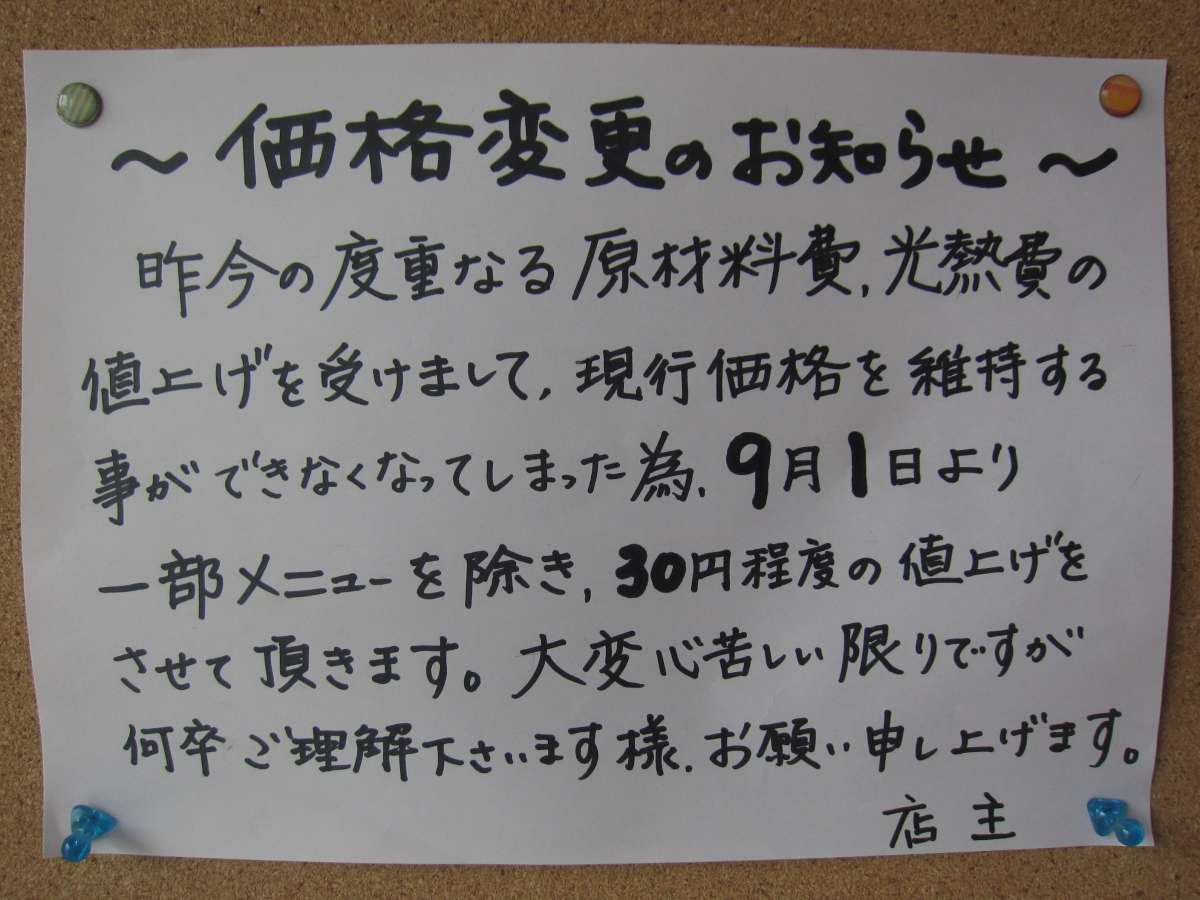 ～価格変更のお知らせ～
昨今の度重なる原材料費,光熱費の
値上げを受けまして,現行価格を維持する
事ができなくなってしまった為,9月1日より
一部メニューを除き,30円程度の値上げを
させて頂きます。大変心苦しい限りですが
何卒ご理解下さいます様,お願い申し上げます。
店主